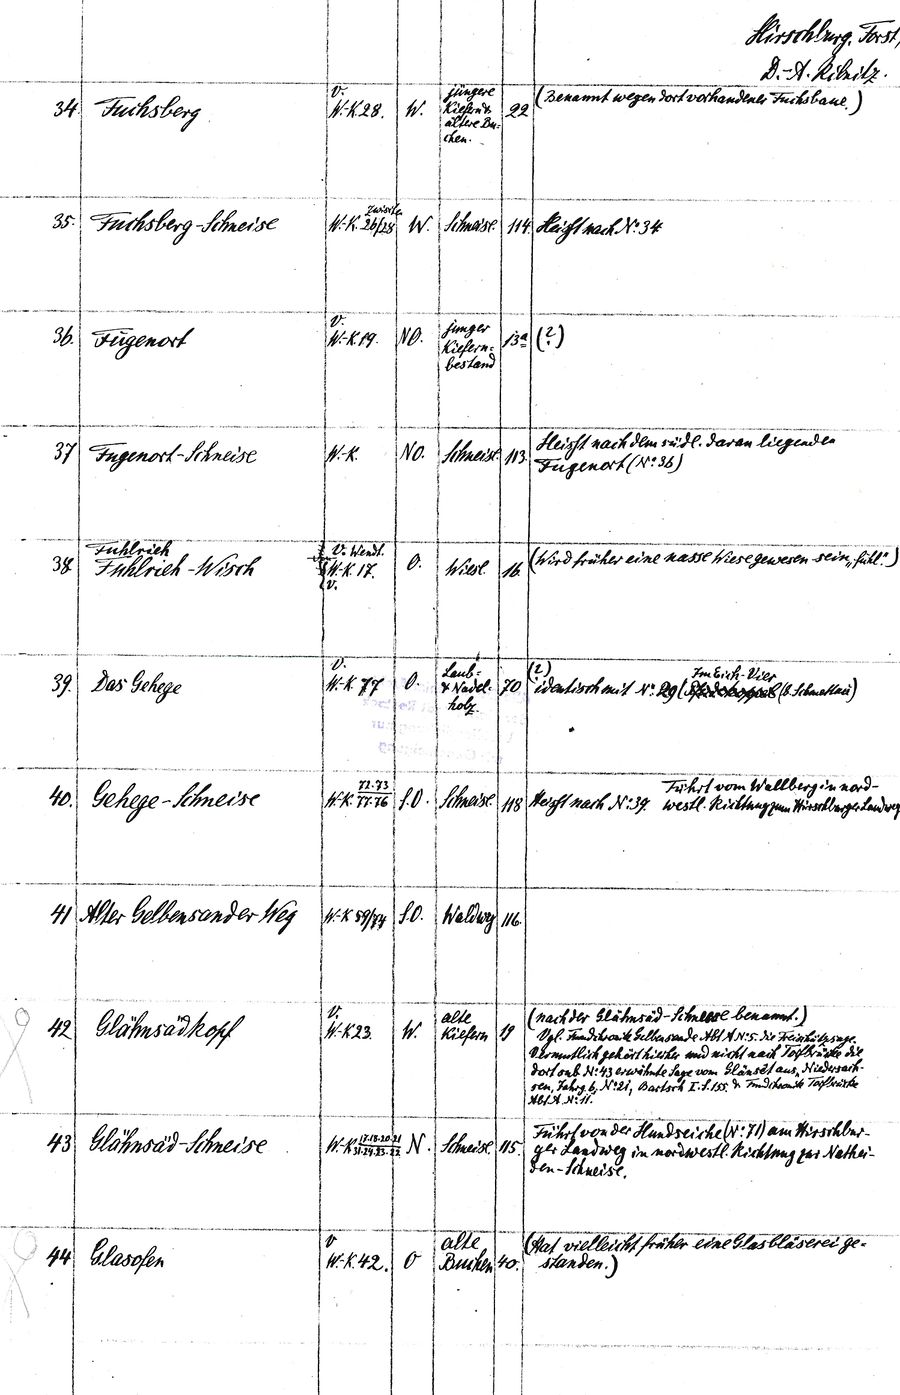 Hirschburg. Forst,
D.-A. Ribnitz.
34 Fuchsberg V. W.-K. 28. W. jüngere Kiefern & ältere Bu- chen. 22 (Benannt wegen dort vorhandener Fuchsbaue.)
35. Fuchsberg-Schneise W.-K. zwischen 26/28 W. Schneise. 114. Heißt nach N° 34
36. Fugenort V. W.-K. 19. NO. junger Kiefern- bestand 13a (?)
37 Fugenort-Schneise W.-K. NO. Schneise. 113. Heißt nach dem südl. daran liegenden
Fugenort (N° 36)
38 Fuhlrieh
Fuhlrieh-Wisch V. Wendt. W.-K. 17. V. O. Wiese. 16. (Wird früher eine nasse Wiese gewesen sein, „fuhl“.)
39. Das Gehege V. W.-K. 77 O. Laub- & Nadel- holz. 70 (?) identisch mit N° 29 (Im Eich-Vier (b. Schmettau)
40. Gehege-Schneise W.-K. 72.73 77.76 S.O. Schneise. 118 Heißt nach N° 39. Führt vom Wallberg in nord-
westl. Richtung zum Hirschburger Landweg
41 Alter Gelbensander Weg W.-K. 59/74 S.O. Waldweg 116.
42 Glähnsädkopf V. W.-K. 23. W. alte Kiefern 19 (nach der Glähnsäd-Schneise benannt.)
Vgl. Fundchronik Gelbensande Abt A N° 5. die Freischützsage.
Vermutlich gehört hierher und nicht nach Torfbrücke die
dort sub N° 43 erwähnte Sage vom Glänsät aus, Niedersach-
sen, Jahrg. 6, N° 21, Bartsch I. S. 155. & Fundchronik Torfbrücke
Abt A. N° 11.
43 Glähnsäd-Schneise W.-K. 17.18.20.21 N. Schneise. 115. Führt von der Hundseiche (N° 71) am Hirschbur-
ger Landweg in nordwestl. Richtung zur Nathei-
den-Schneise.
44 Glasofen V W.-K. 42. O alte Buchen 40. (Hat vielleicht früher eine Glasbläserei ge-
standen.)